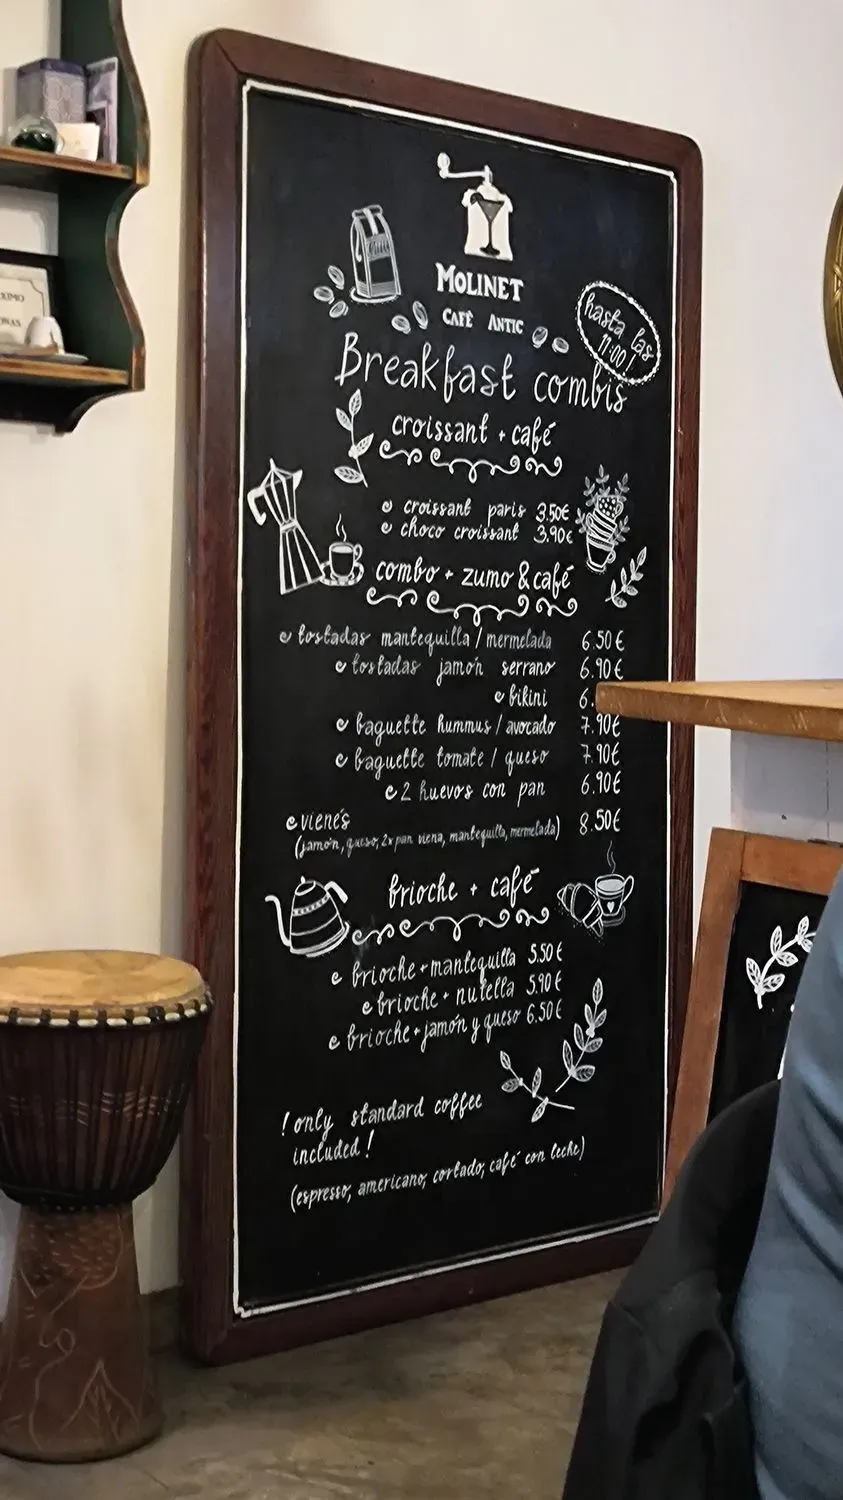 MOLINET
CAFÈ ANTIC
hasta las
11:00!
Breakfast combis
croissant + café
croissant paris 3.50€
choco croissant 3.90€
combo + zumo & café
tostadas mantequilla / mermelada 6.50€
tostadas jamón serrano 6.90€
bikini 6.
baguette hummus / avocado 7.90€
baguette tomate / queso 7.90€
2 huevos con pan 6.90€
vienés 8.50€
(jamón, queso, 2x pan viena, mantequilla, mermelada)
brioche + café
brioche + mantequilla 5.50€
brioche + nutella 5.90€
brioche + jamón y queso 6.50€
! only standard coffee
included!
(espresso, americano, cortado, café con leche)